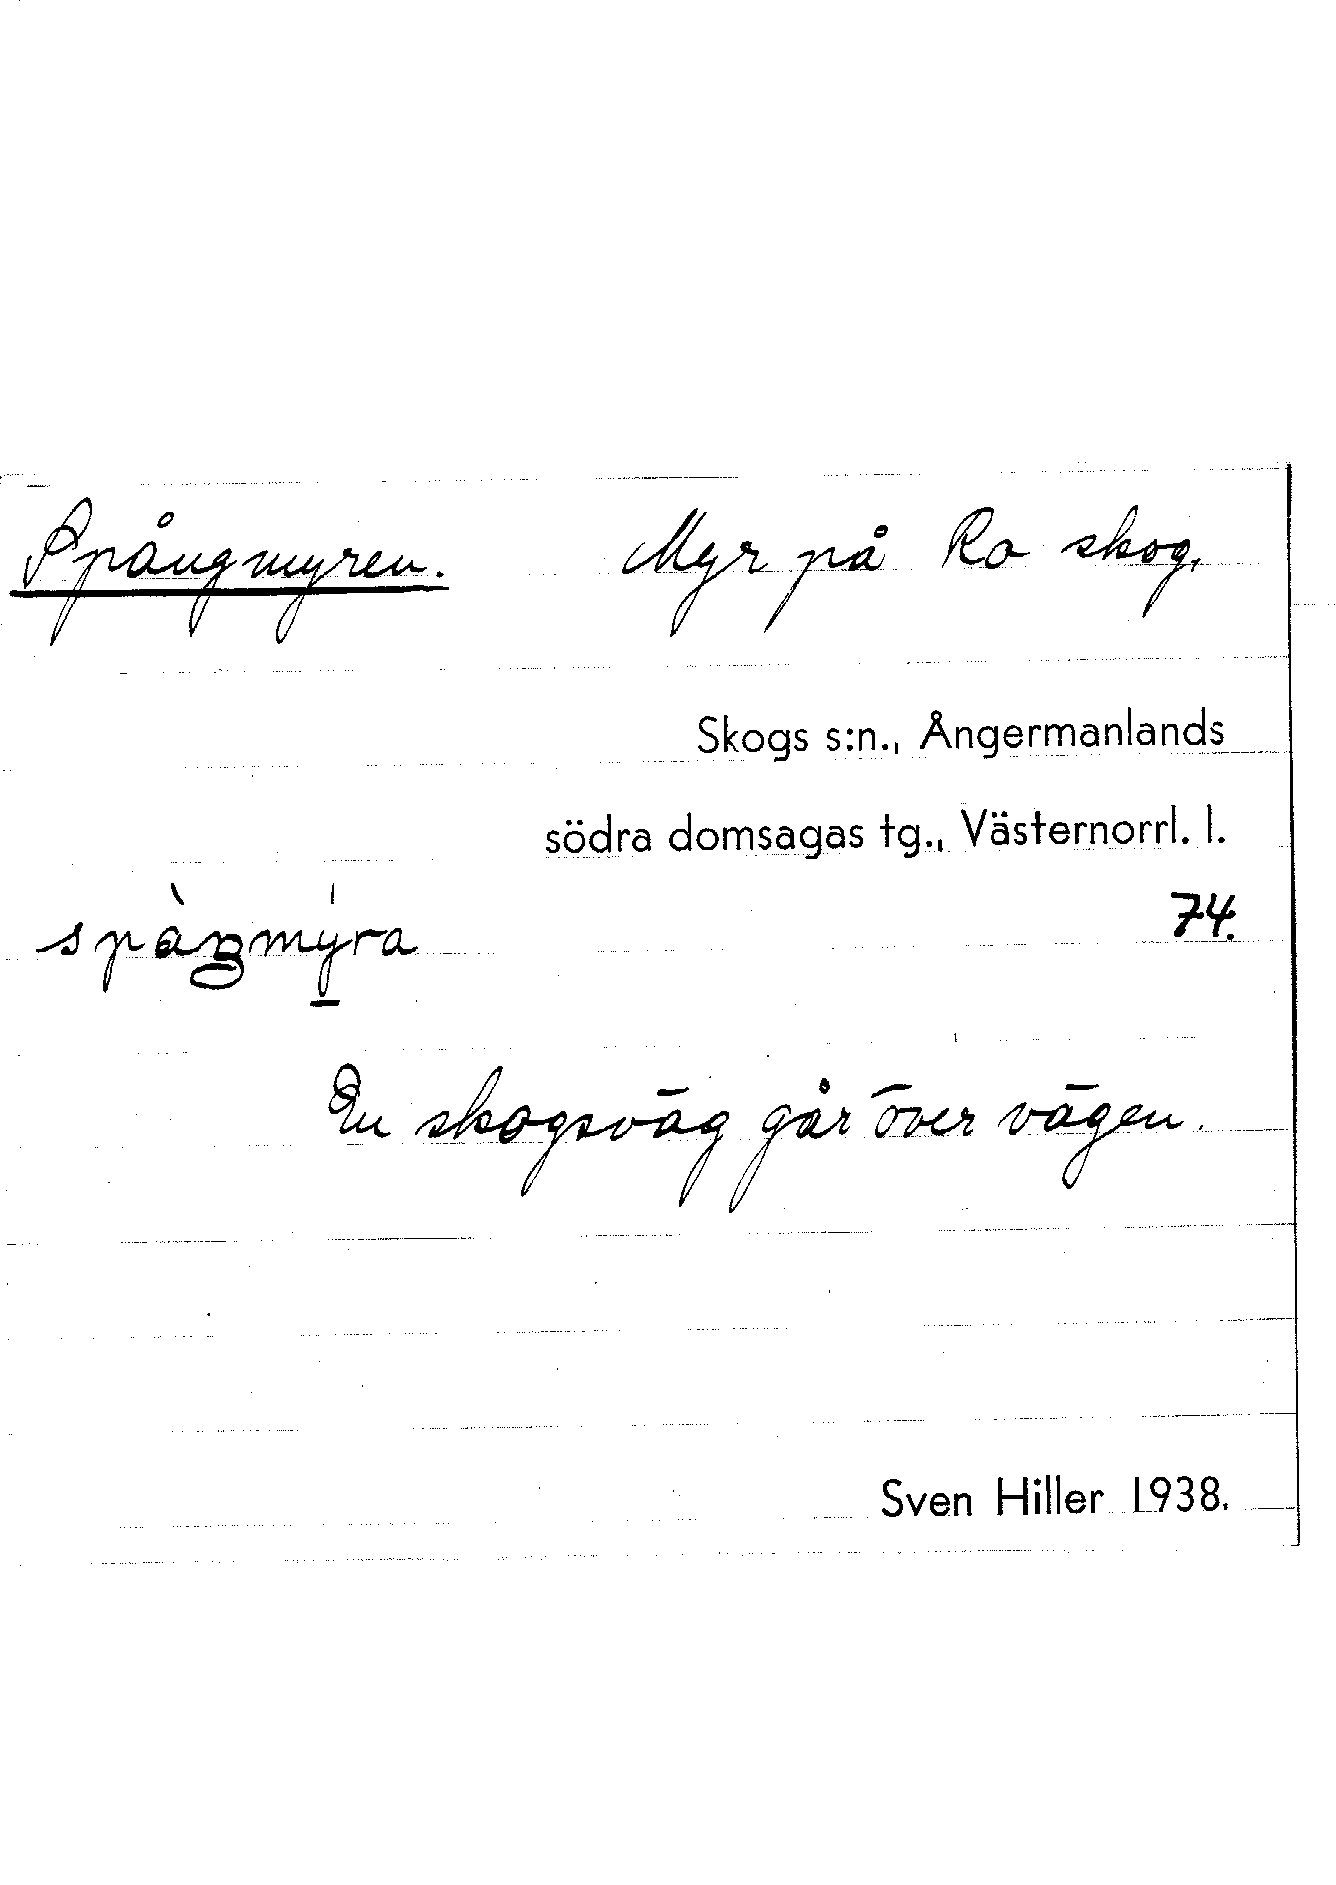 Spångmyren. Myr på Ro skog.
Skogs s:n., Ångermanlands
södra domsagas tg., Västernorrl. l.
74.
spàŋmýra
En skogsväg går över vägen.
Sven Hiller 1938.